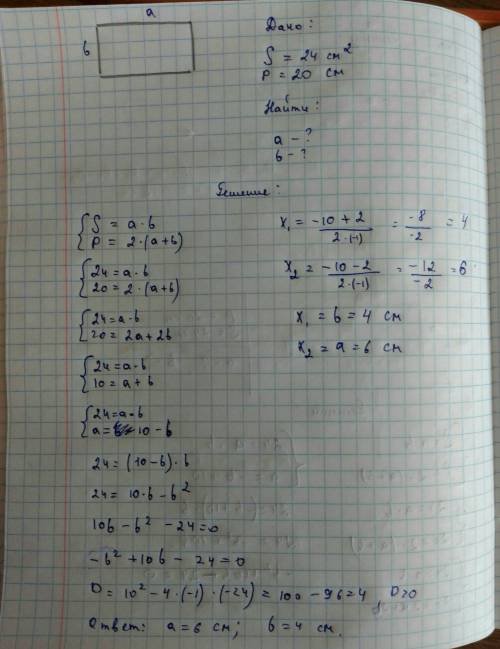 a
b
Дано:
S = 24 см²
P = 20 см
Найти:
a - ?
b - ?
Решение:
{ S = a · b
P = 2 · (a + b)
{ 24 = a · b
20 = 2 · (a + b)
{ 24 = a · b
20 = 2a + 2b
{ 24 = a · b
10 = a + b
{ 24 = a · b
a = 10 - b
24 = (10 - b) · b
24 = 10 · b - b²
10b - b² - 24 = 0
-b² + 10b - 24 = 0
D = 10² - 4 · (-1) · (-24) = 100 - 96 = 4, D>0
X₁ = (-10 + 2)/(2 · (-1)) = -8/-2 = 4
X₂ = (-10 - 2)/(2 · (-1)) = -12/-2 = 6
X₁ = b = 4 см
X₂ = a = 6 см
Ответ: a = 6 см; b = 4 см.